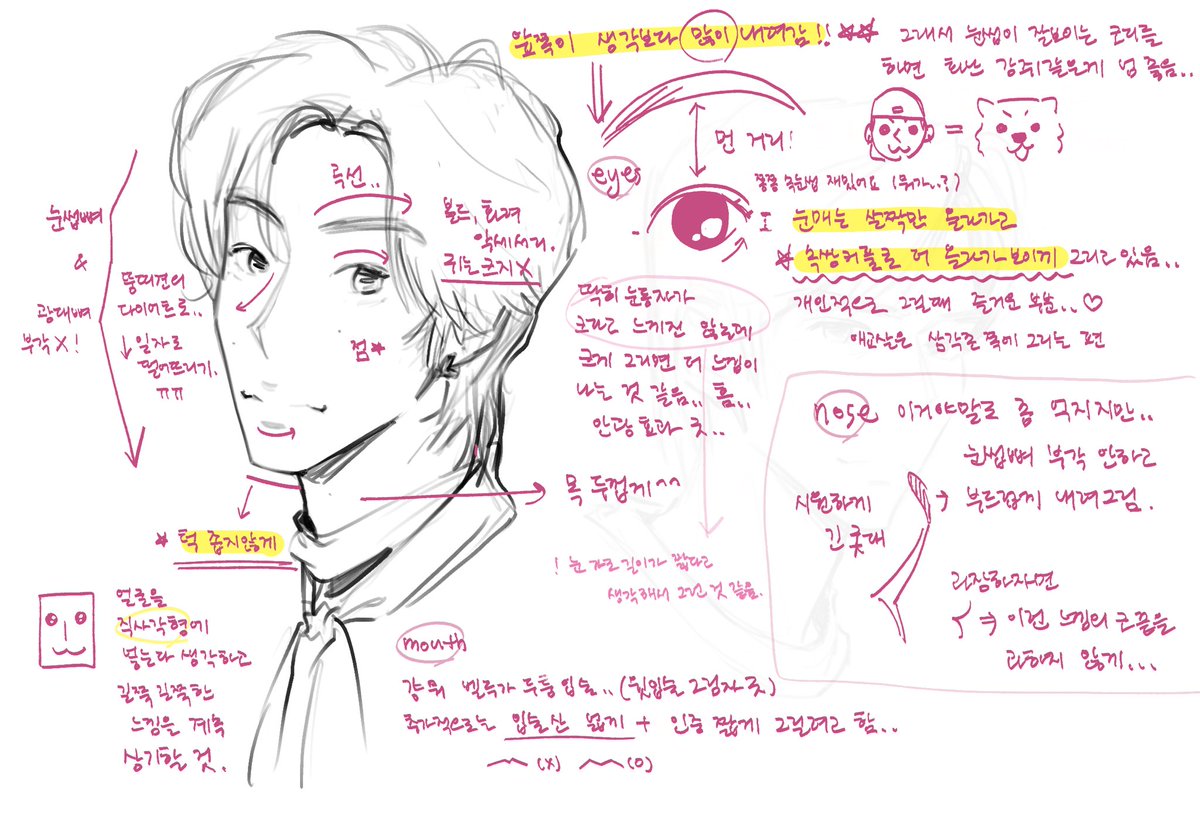 앞쪽이 생각보다 많이 내려감!!
그래서 눈썹이 잘보이는 코디를
하면 화난 강쥐같은게 넘 좋음..
=
먼 거리!
eyes
쫑쫑 속눈썹 재밌어요 (뭐가..?)
눈매는 살짝만 올라가고
속쌍커풀로 더 올라가보이게 그리고 있음..
개인적으로 그릴때 즐거운 부분..♡
애교살은 삼각존 쪽에 그리는 편
딱히 눈동자가
크다고 느끼진 않는데
크게 그리면 더 느낌이
나는 것 같음.. 흠..
안당효과 굿..
! 눈 가로 길이가 짧다고
생각해서 그런 것 같음.
눈썹뼈
&
광대뼈
부각 X!
똥때견의
다이어트로..
↓ 일자로
떨어뜨리기.
ㅠㅠ
곡선..
볼드, 화려
악세서리.
귀는 크지 X
점
목 두껍게^^
턱 좁지않게
얼굴을
직사각형에
넣는다 생각하고
길쭉길쭉한
느낌을 계속
상기할 것.
mouth
강쥐 벨루가 두툼입술..(윗입술 그림자 굿)
추가적으로는 입술산 넓게 + 인중 짧게 그릴려고 함..
(X) (O)
nose 이거야말로 좀 억지지만..
눈썹뼈 부각 안하고
부드럽게 내려그림.
시원하게
긴 콧대
과장하자면
⇒ 이런 느낌의 코끝을
과하지 않게...